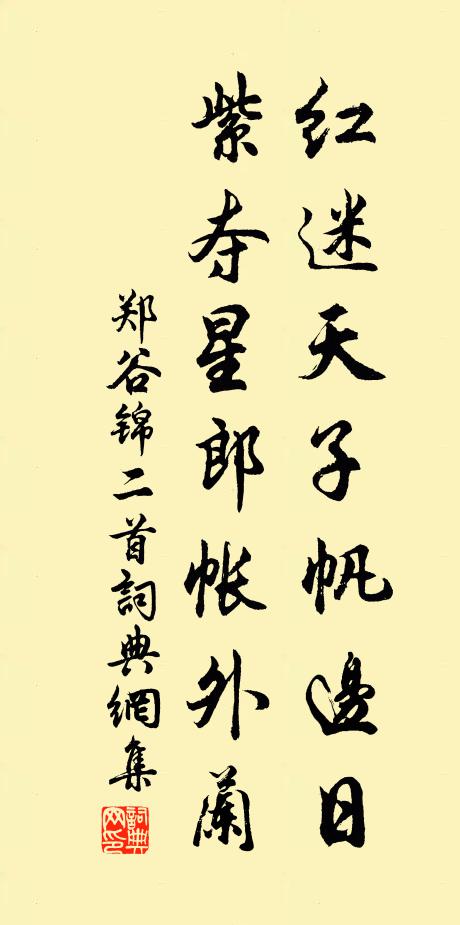 红迷天子帆邊日
紫夺星郎帐外蘭
郑谷锦二首詞典網集
詞典网印